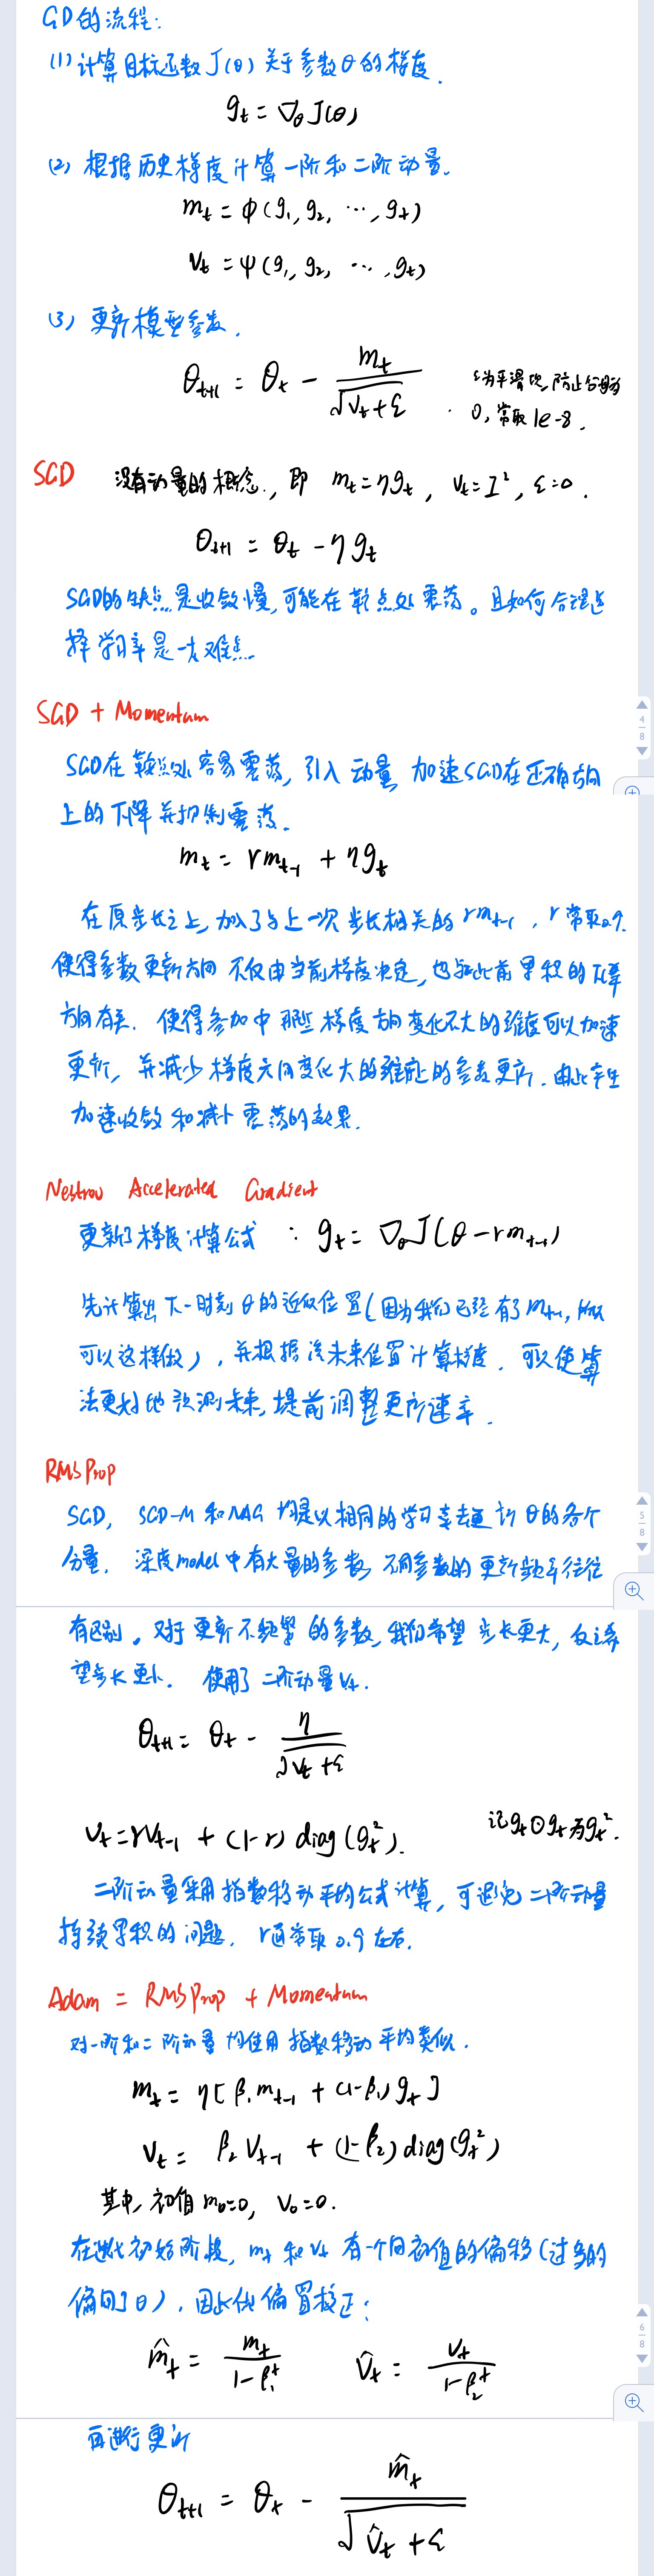 GD的流程:
(1) 计算目标函数J(θ)关于参数θ的梯度.
g_t = ∇_θ J(θ)
(2) 根据历史梯度计算一阶和二阶动量.
m_t = φ(g_1, g_2, ⋯, g_t)
v_t = ψ(g_1, g_2, ⋯, g_t)
(3) 更新模型参数.
θ_{t+1} = θ_t - m_t / √(v_t + ε) . ε为平滑项,防止分母为
0, 常取1e-8.
SGD 没有动量的概念, 即 m_t = ηg_t, v_t = I², ε=0.
θ_{t+1} = θ_t - ηg_t
SGD的缺点是收敛慢,可能在鞍点处震荡。且如何合理选
择学习率是一大难点.
SGD + Momentum
SGD在鞍点处容易震荡, 引入动量, 加速SGD在正确方向
上的下降并抑制震荡.
m_t = rm_{t-1} + ηg_t
在原步长之上,加入了与上一次步长相关的rm_{t-1}, r常取0.9.
使得参数更新方向不仅由当前梯度决定,也与此前累积的下降
方向有关. 使得参加中那些梯度方向变化不大的维度可以加速
更新, 并减少梯度方向变化大的维度上的参数更新. 由此产生
加速收敛和减小震荡的效果.
Nestrov Accelerated Gradient
更新了梯度计算公式: g_t = ∇_θ J(θ - rm_{t-1})
先计算出下一时刻θ的近似位置(因为我们已经有了m_{t-1}, 所以
可以这样做), 并根据该未来位置计算梯度. 可以使算
法更好地预测未来,提前调整更新速率.
RMSProp
SGD, SGD-M 和NAG 均是以相同的学习率去更新θ的各个
分量. 深度model中有大量的参数, 不同参数的更新频率往往
有区别。对于更新不频繁的参数,我们希望步长更大, 反之希
望步长更小. 使用了二阶动量v_t.
θ_{t+1} = θ_t - η / √(v_t + ε)
v_t = rv_{t-1} + (1-r) diag(g_t²). 记g_t⊙g_t为g_t².
二阶动量采用指数移动平均公式计算, 可避免二阶动量
持续累积的问题. r通常取0.9左右.
Adam = RMSProp + Momentum
对一阶和二阶动量均使用指数移动平均类似.
m_t = η[β_1 m_{t-1} + (1-β_1)g_t]
v_t = β_2 v_{t-1} + (1-β_2) diag(g_t²)
其中,初值m_0=0, v_0=0.
在迭代初始阶段, m_t和v_t有一个向初值的偏移(过多的
偏向了0). 因此做偏置校正:
m̂_t = m_t / (1-β_1^t) v̂_t = v_t / (1-β_2^t)
再进行更新
θ_{t+1} = θ_t - m̂_t / √(v̂_t + ε)
4
8
5
8
6
8